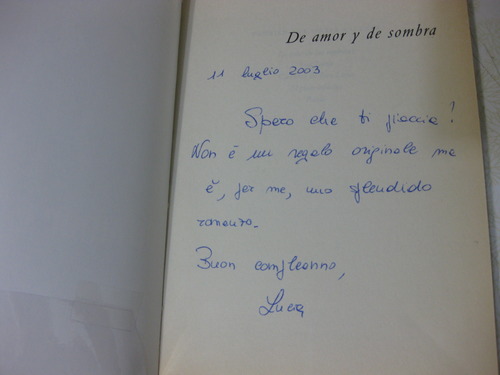 De amor y de sombra
11 luglio 2003
Spero che ti piaccia!
Non è un regalo originale ma
è, per me, uno splendido
romanzo.
Buon compleanno,
Lucia